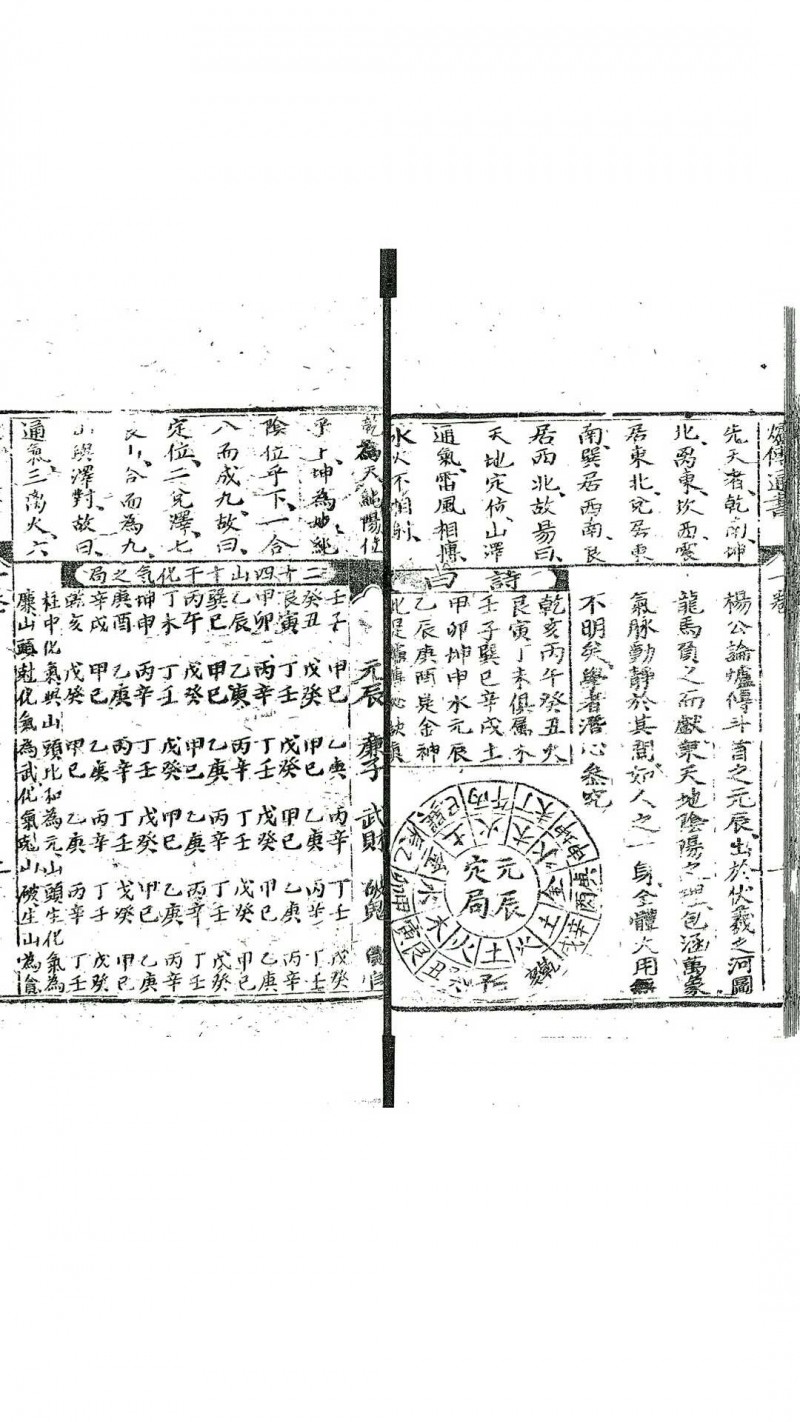 先天者、乾南、坤
北、离東、坎西、震
居東北、兌居東
南、巽居西南、艮
居西北、故易曰、
天地定位、山澤
通氣、雷風相摶、
水火不相射、
楊公論爐傳斗首之元辰、出於伏羲之河圖
龍馬負之而獻衆、天地陰陽之理、包涵萬象
氣脉動靜於其間、如人之一身、全體大用無
不明矣、學者潛心參究
詩曰
乾亥丙午癸丑火
艮寅丁未俱属木
壬子巽巳辛戌土
甲卯坤申水元辰
乙辰庚酉是金神
元辰定局
乾為天、純陽位
乎上、坤為地、純
陰位乎下、一合
八而成九、故曰、
定位、二兌澤、七
艮山、合而為九、
山與澤對、故曰、
通氣、三离火、六
二十四山十干化氣之局
元辰 廉子 武財 破鬼 貪官
壬子 甲己 乙庚 丙辛 丁壬 戊癸
癸丑 戊癸 甲己 乙庚 丙辛 丁壬
艮寅 丁壬 戊癸 甲己 乙庚 丙辛
甲卯 丙辛 丁壬 戊癸 甲己 乙庚
乙辰 乙庚 丙辛 丁壬 戊癸 甲己
巽巳 甲己 乙庚 丙辛 丁壬 戊癸
丙午 戊癸 甲己 乙庚 丙辛 丁壬
丁未 丁壬 戊癸 甲己 乙庚 丙辛
坤申 丙辛 丁壬 戊癸 甲己 乙庚
庚酉 乙庚 丙辛 丁壬 戊癸 甲己
辛戌 甲己 乙庚 丙辛 丁壬 戊癸
乾亥 戊癸 甲己 乙庚 丙辛 丁壬
柱中化氣與山頭比和為元、山頭生化氣為
廉、山頭尅化氣為武、化氣尅山破、生山為貪